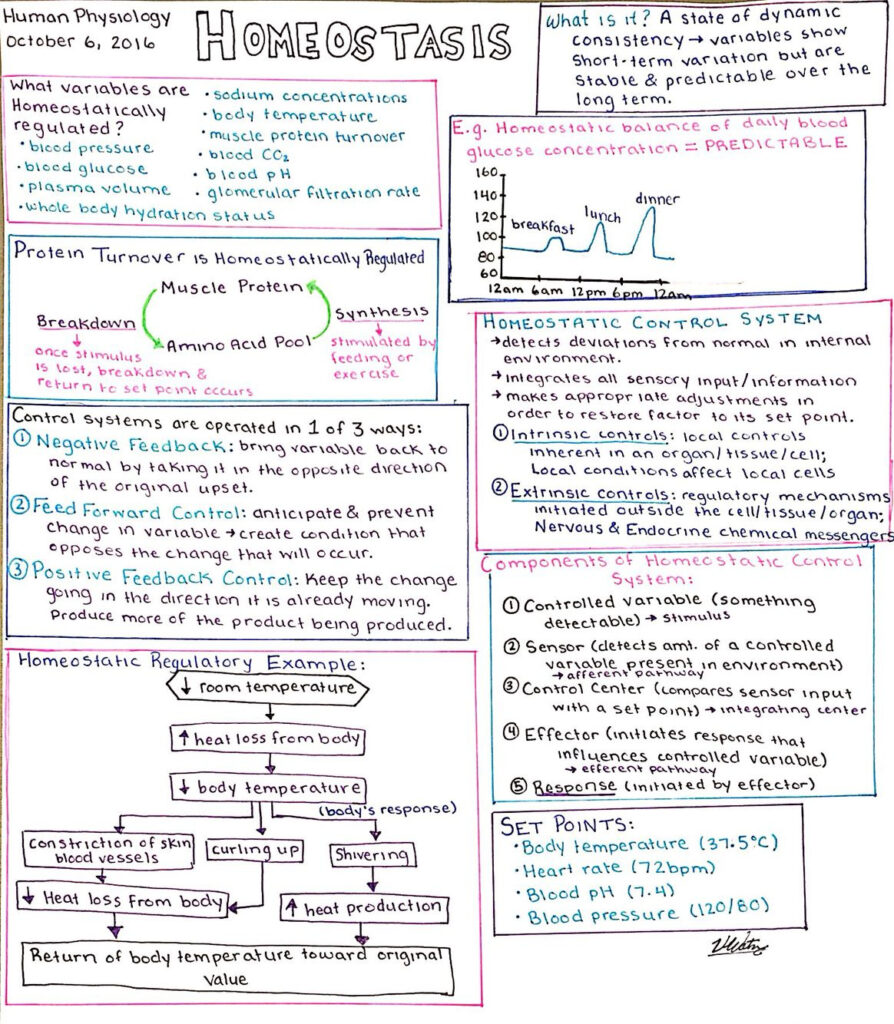 Human Physiology
October 6, 2016
HOMEOSTASIS
What is it? A state of dynamic
consistency → variables show
short-term variation but are
stable & predictable over the
long term.
What variables are
Homeostatically
regulated?
• blood pressure
• blood glucose
• plasma volume
• whole body hydration status
• sodium concentrations
• body temperature
• muscle protein turnover
• blood CO₂
• blood pH
• glomerular filtration rate
E.g. Homeostatic balance of daily blood
glucose concentration = PREDICTABLE
160
140
120
100
80
60
breakfast
lunch
dinner
12am 6am 12pm 6pm 12am
Protein Turnover is Homeostatically Regulated
Muscle Protein
Breakdown
once stimulus
is lost, breakdown &
return to set point occurs
Amino Acid Pool
Synthesis
stimulated by
feeding or
exercise
HOMEOSTATIC CONTROL SYSTEM
→ detects deviations from normal in internal
environment.
→ integrates all sensory input/information
→ makes appropriate adjustments in
order to restore factor to its set point.
① Intrinsic controls: local controls
inherent in an organ/tissue/cell;
Local conditions affect local cells
② Extrinsic controls: regulatory mechanisms
initiated outside the cell/tissue/organ;
Nervous & Endocrine chemical messengers
Control systems are operated in 1 of 3 ways:
① Negative Feedback: bring variable back to
normal by taking it in the opposite direction
of the original upset.
② Feed Forward Control: anticipate & prevent
change in variable → create condition that
opposes the change that will occur.
③ Positive Feedback Control: Keep the change
going in the direction it is already moving.
Produce more of the product being produced.
Components of Homeostatic Control
System:
① Controlled variable (something
detectable) → stimulus
② Sensor (detects amt. of a controlled
variable present in environment)
→ afferent pathway
③ Control Center (compares sensor input
with a set point) → integrating center
④ Effector (initiates response that
influences controlled variable)
→ efferent pathway
⑤ Response (initiated by effector)
Homeostatic Regulatory Example:
↓ room temperature
↑ heat loss from body
↓ body temperature
(body's response)
Constriction of skin
blood vessels
curling up
Shivering
↓ Heat loss from body
↑ heat production
Return of body temperature toward original
value
SET POINTS:
• Body temperature (37.5°C)
• Heart rate (72bpm)
• Blood pH (7.4)
• Blood pressure (120/80)